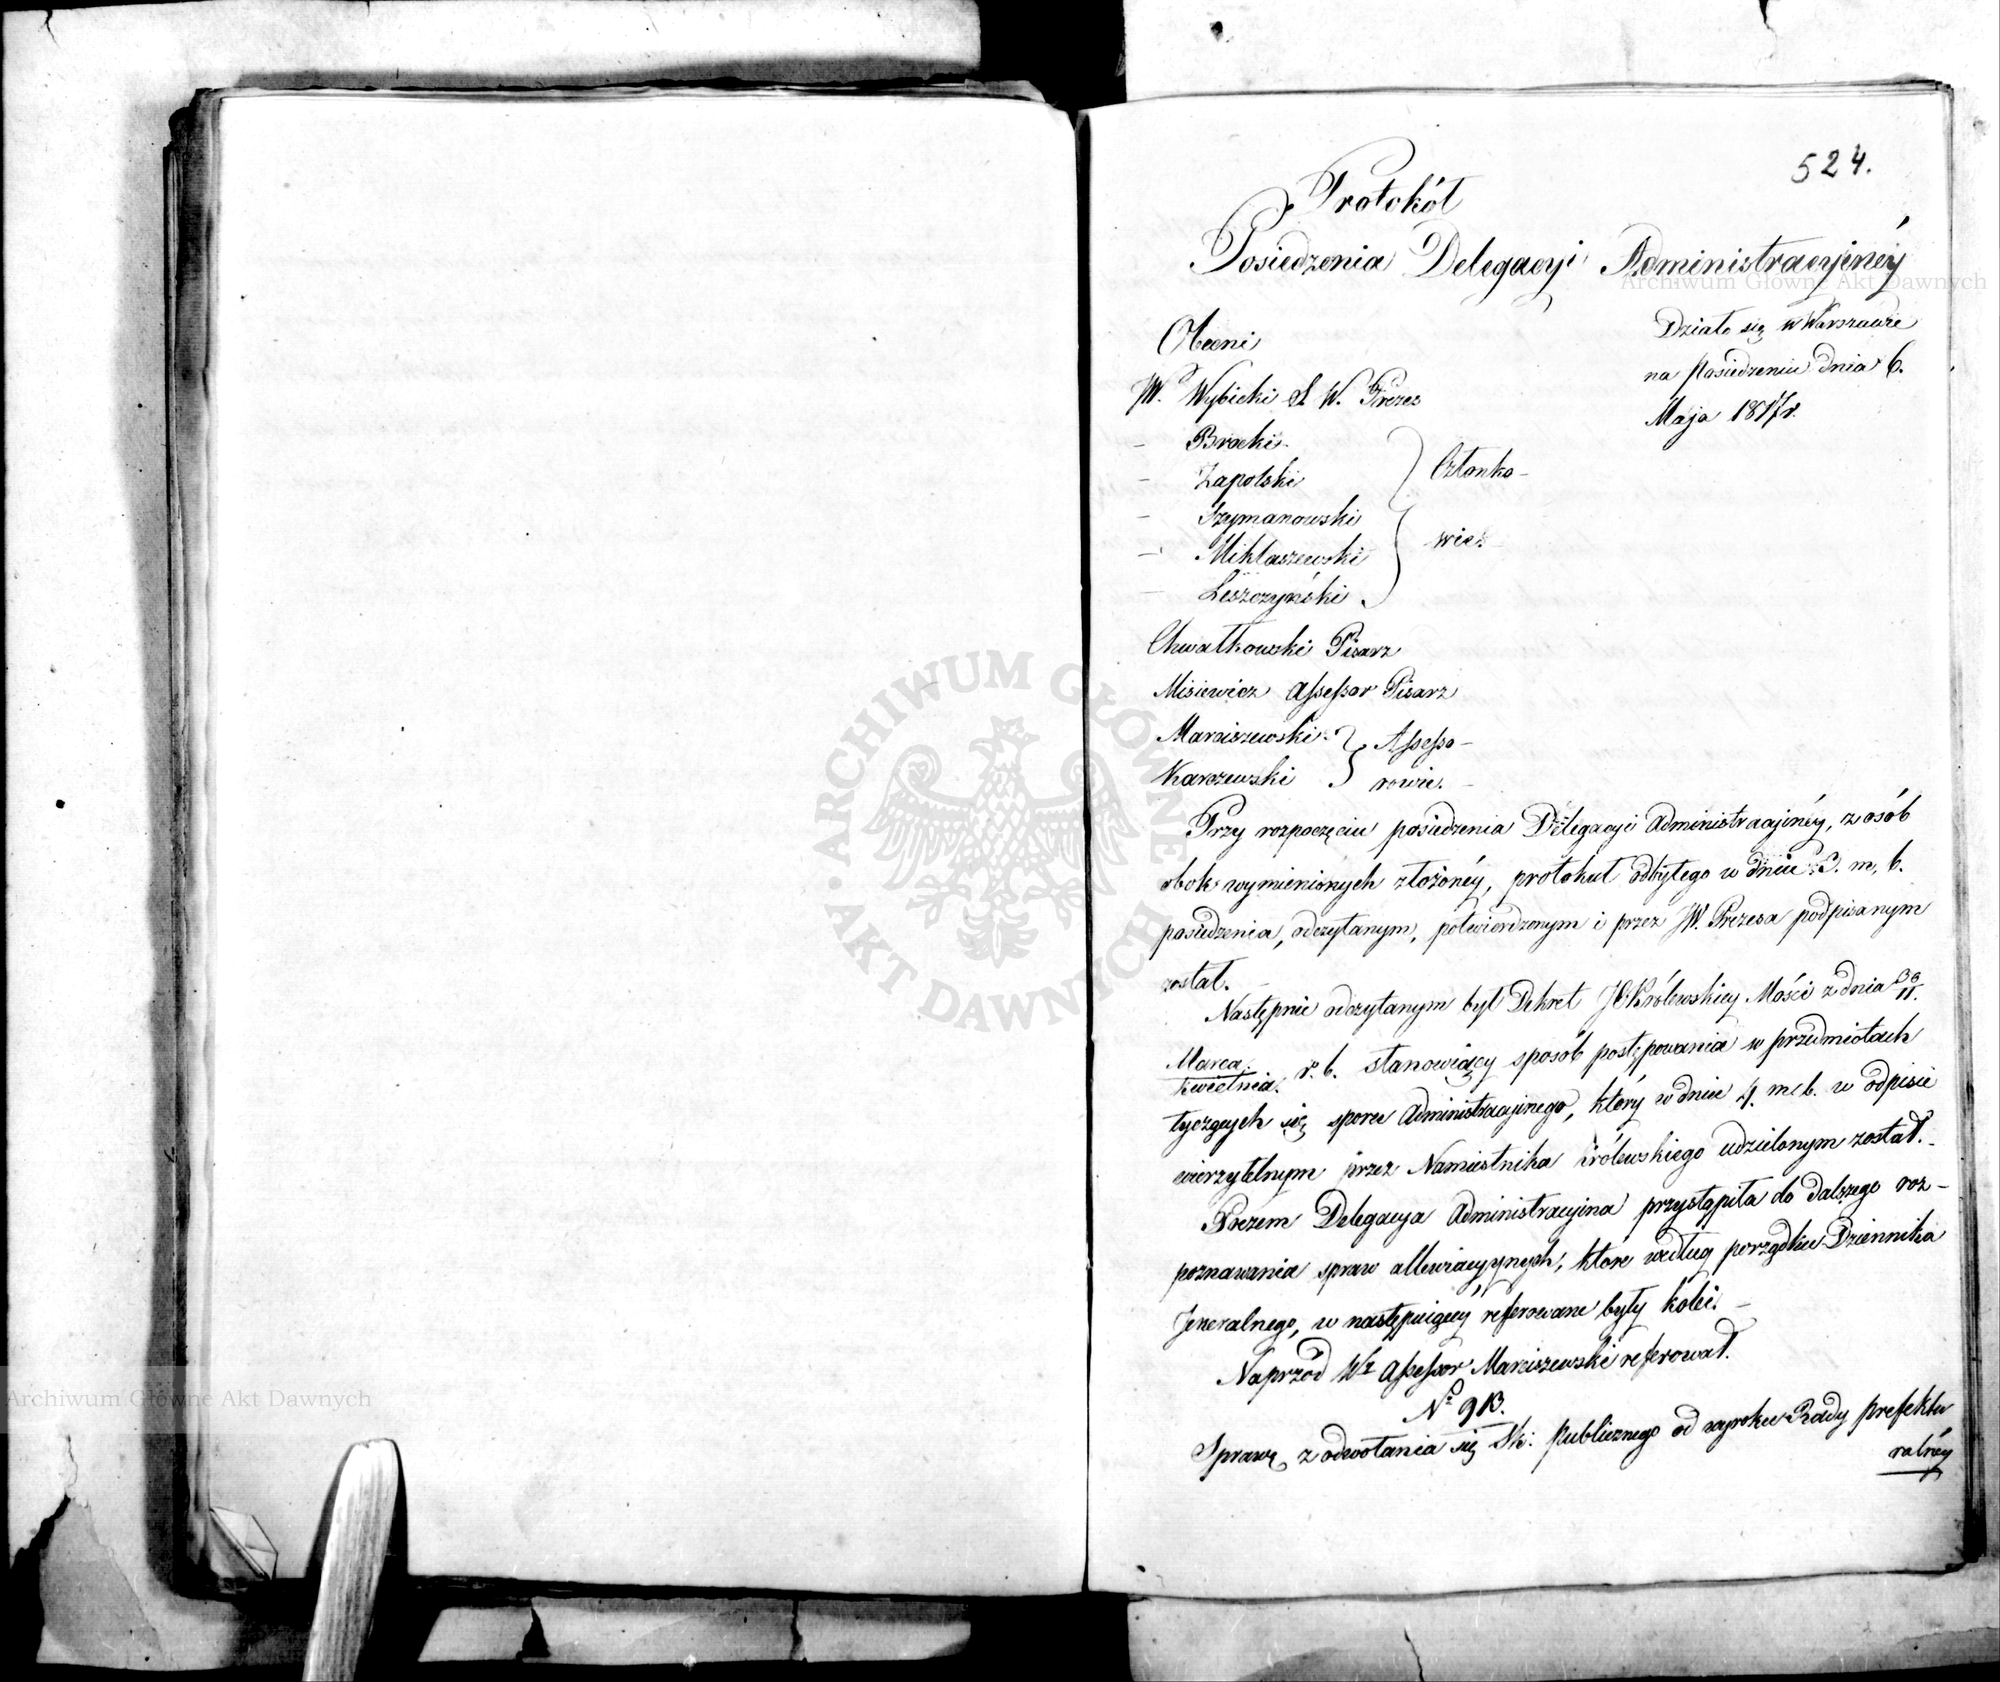 524.
Protokół
Posiedzenia Delegacyi Administracyinéy
Działo się w Warszawie
na posiedzeniu dnia 6.
Maja 1817 r.
Obecni
JW. Wybicki S. W. Prezes
— Brocki
— Zapolski
— Szymanowski
— Miklaszewski
— Leszczyński
Członko-
wie.
Chwalkowski Pisarz
Misiewicz Assessor Pisarz
Marciszewski
Karczewski
Assesso-
rowie.
Przy rozpoczęciu posiedzenia Delegacyi Administracyinéy, z osób
obok wymienionych złożonéy, protokuł odbytego w dniu 3. m. b.
posiedzenia, odczytanym, potwierdzonym i przez JW. Prezesa podpisanym
został.
Następnie odczytanym był Dekret JKrólewskiey Mości z dnia 30/11.
Marca/Kwietnia. r. b. stanowiący sposób postępowania w przedmiotach
tyczących się sporu Administracyinego, który w dniu 4. m. b. w odpisie
wierzytelnym przez Namiestnika Królewskiego udzielonym został.
Poczem Delegacya Administracyina przystąpiła do dalszego roz-
poznawania spraw allewiacyynych, które według porządku Dziennika
Jeneralnego, w następuiącéy referowane były kolei.
Naprzód Wr Assessor Marciszewski referował.
Nr 913.
Sprawę z odwołania się Sk: publicznego od wyroku Rady prefektu
ralnéy
ARCHIWUM GŁÓWNE
AKT DAWNYCH
Archiwum Główne Akt Dawnych
Archiwum Główne Akt Dawnych